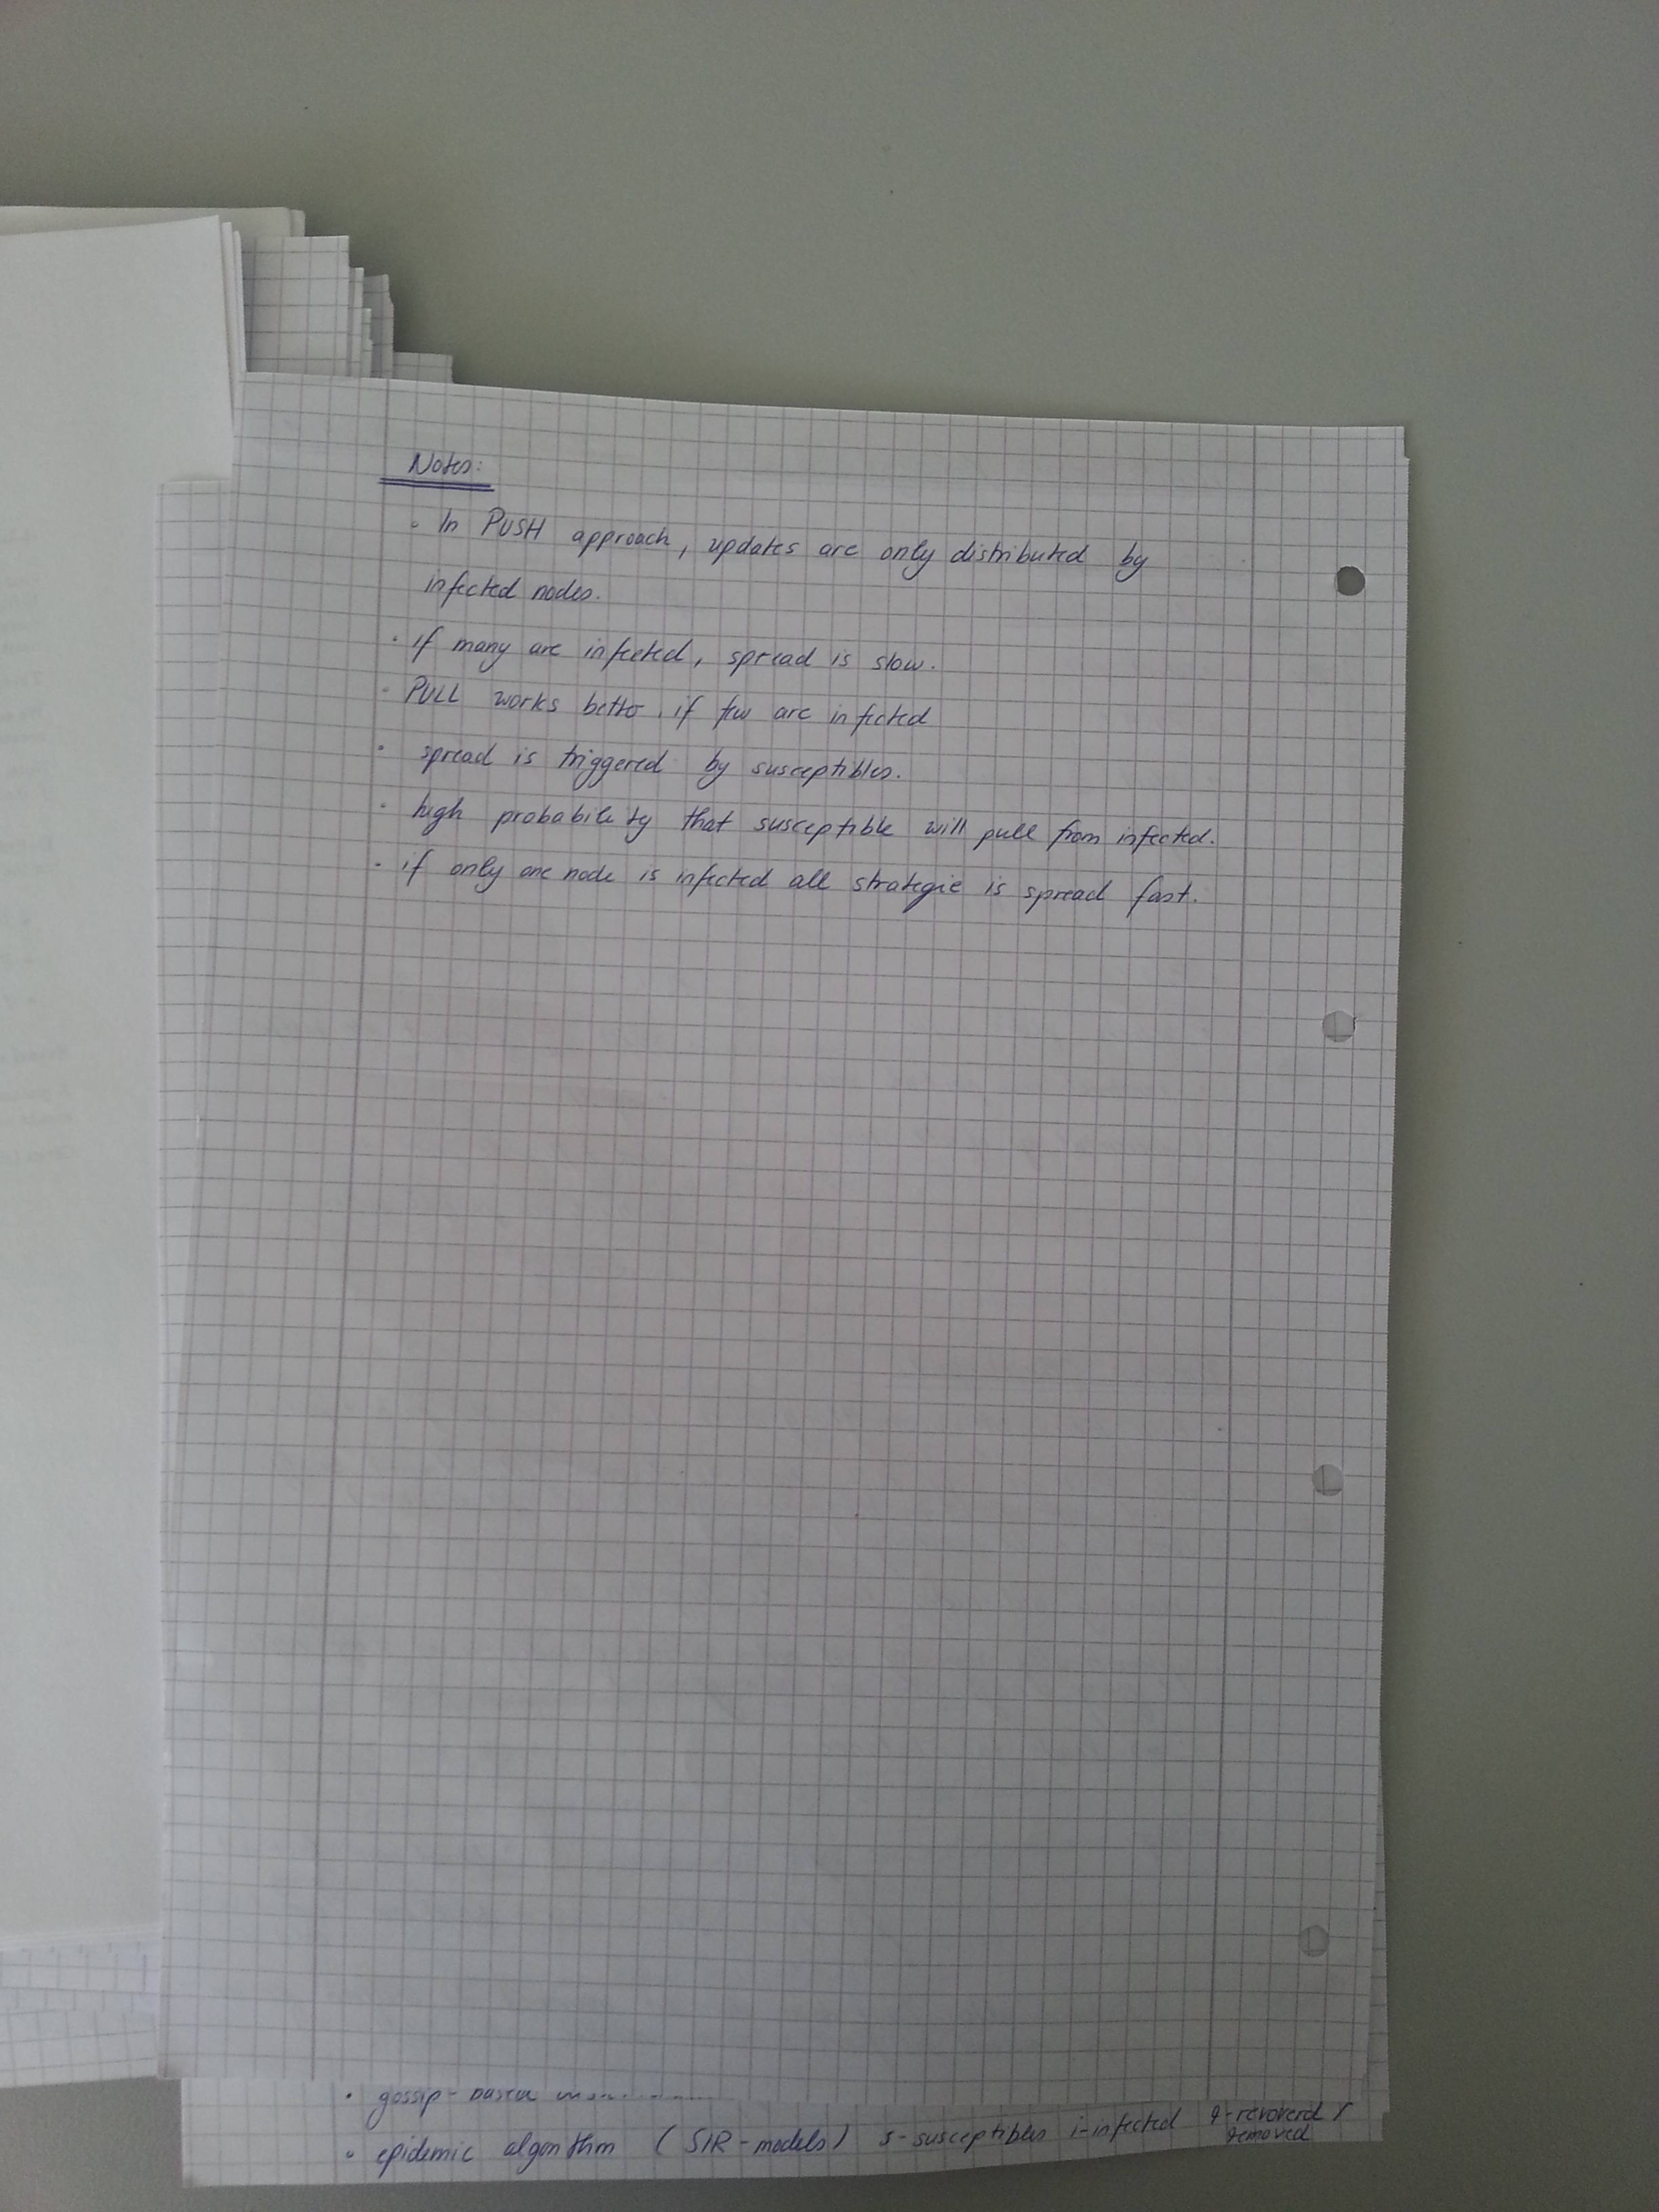 Notes:
◦ In PUSH approach, updates are only distributed by
infected nodes.
◦ if many are infected, spread is slow.
◦ PULL works better, if few are infected
◦ spread is triggered by susceptibles.
◦ high probability that susceptible will pull from infected.
◦ if only one node is infected all strategie is spread fast.
• gossip-
◦ epidemic algorithm (SIR-models) s-susceptibles i-infected r-revoverd/
removed